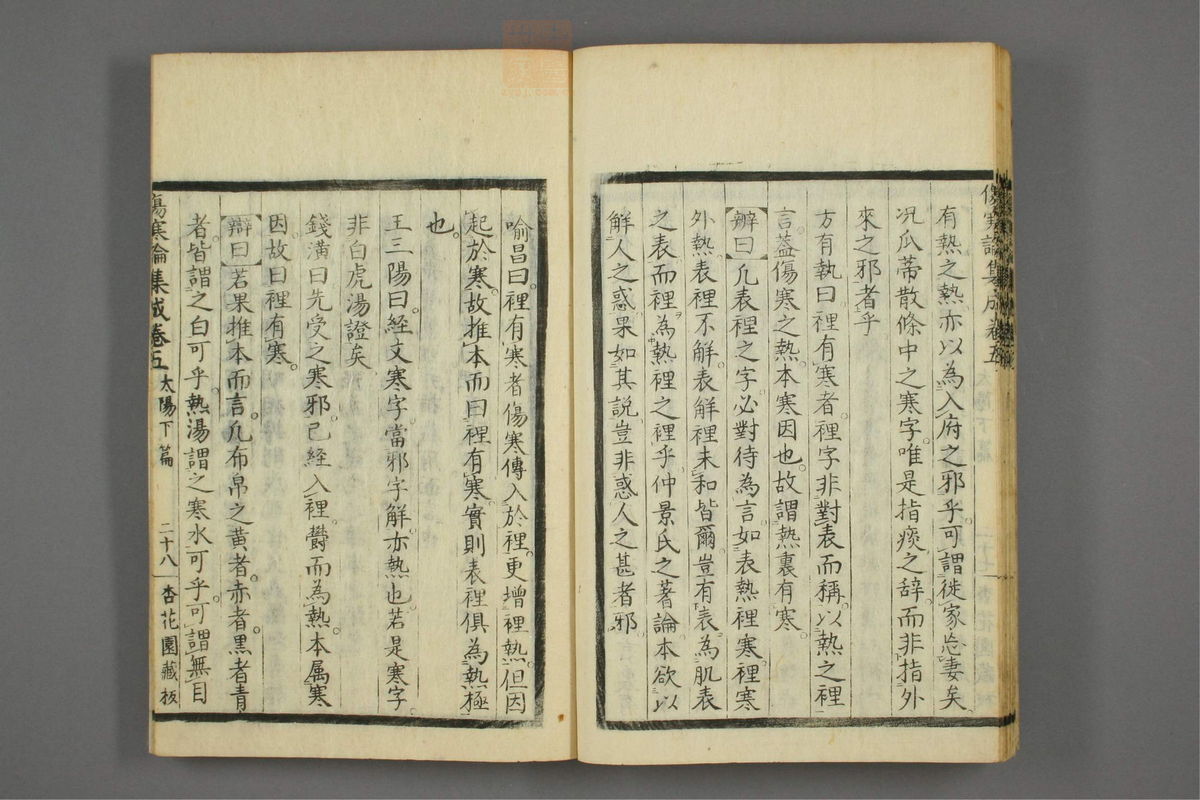 傷寒論集成卷五
有熱之熱亦以為入府之邪乎可謂徙家忘妻矣
况瓜蒂散條中之寒字唯是指痰之辞而非指外
來之邪者乎
方有執曰裡有寒者裡字非對表而稱以熱之裡
言葢傷寒之熱本寒因也故謂熱裏有寒
辨曰凡表裡之字必對待為言如表熱裡寒裡寒
外熱表裡不解表解裡未和皆爾豈有表為肌表
之表而裡為熱裡之裡乎仲景氏之著論本欲以
解人之惑果如其說豈非惑人之甚者邪
喻昌曰裡有寒者傷寒傳入於裡更增裡熱但因
起於寒故推本而曰裡有寒實則表裡俱為熱極
也
王三陽曰經文寒字當邪字解亦熱也若是寒字
非白虎湯證矣
錢潢曰先受之寒邪已經入裡欝而為熱本属寒
因故曰裡有寒
辯曰若果推本而言凡布帛之黄者赤者黒者青
者皆謂之白可乎熱湯謂之寒水可乎可謂無目
傷寒論集成卷五 太陽下篇 二十八 杏花園藏板